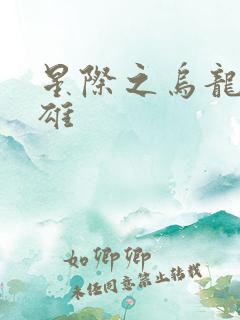 星際之烏龍
雄
如卿卿
未经同意禁止转载